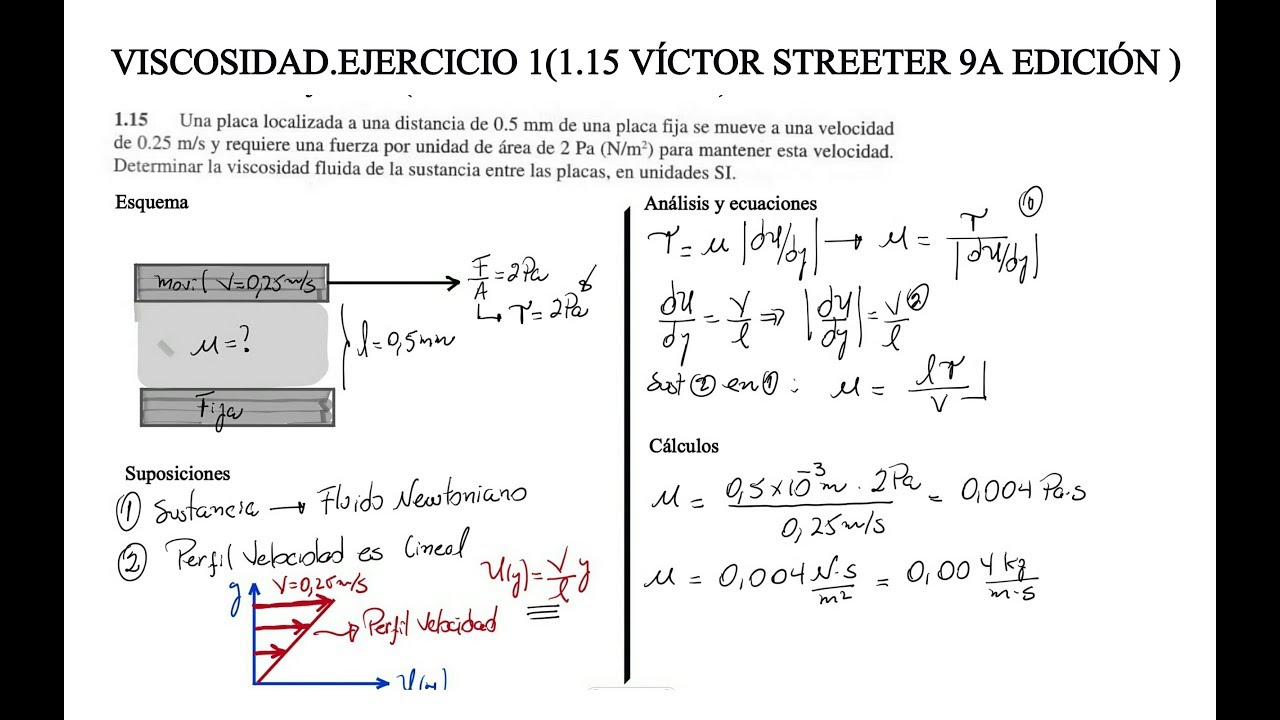 VISCOSIDAD.EJERCICIO 1(1.15 VÍCTOR STREETER 9A EDICIÓN )
1.15 Una placa localizada a una distancia de 0.5 mm de una placa fija se mueve a una velocidad
de 0.25 m/s y requiere una fuerza por unidad de área de 2 Pa (N/m²) para mantener esta velocidad.
Determinar la viscosidad fluida de la sustancia entre las placas, en unidades SI.
Esquema
movil V=0,25m/s
F/A = 2Pa
↳ τ = 2Pa
μ = ?
l = 0,5mm
Fija
Suposiciones
① Sustancia → Fluido Newtoniano
② Perfil Velocidad es Lineal
y
V=0,25m/s
u(y) = V/l y
Perfil Velocidad
Análisis y ecuaciones
τ = μ |du/dy| → μ = τ/|du/dy| ①
du/dy = V/l ⇒ |du/dy| = V/l ②
Sust ② en ① : μ = lτ/V
Cálculos
μ = 0,5×10⁻³m · 2Pa / 0,25m/s = 0,004 Pa·s
μ = 0,004 N·s/m² = 0,004 kg/m·s